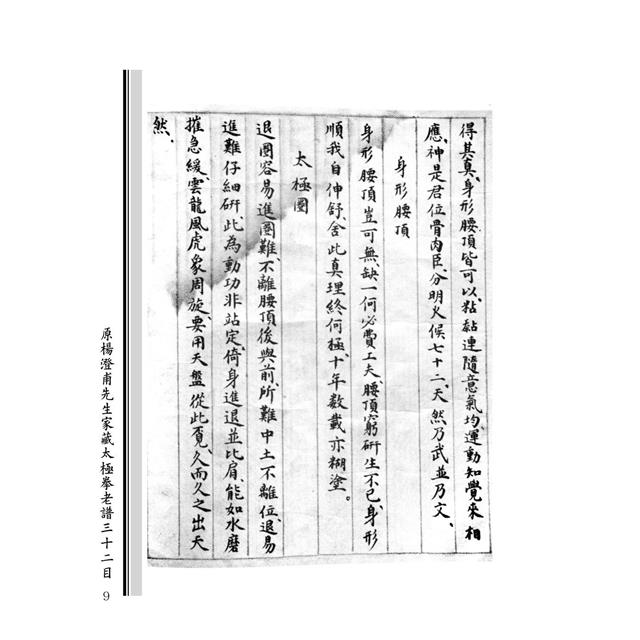 得其真、身形腰頂皆可以、粘黏連隨意氣均、運動知覺來相
應、神是君位骨肉臣、分明火候七十二、天然乃武並乃文、
身形腰頂
身形腰頂豈可無缺一何必費工夫、腰頂窮研生不已、身形
順我自伸舒、舍此真理終何極、十年數載亦糊塗。
太極圈
退圈容易進圈難、不離腰頂後與前、所難中土不離位、退易
進難仔細研、此為動功非站定、倚身進退並比肩、能如水磨
摧急緩、雲龍風虎象周旋、要用天盤從此覓、久而久之出天
然、
原楊澄甫先生家藏太極拳老譜三十二目
9